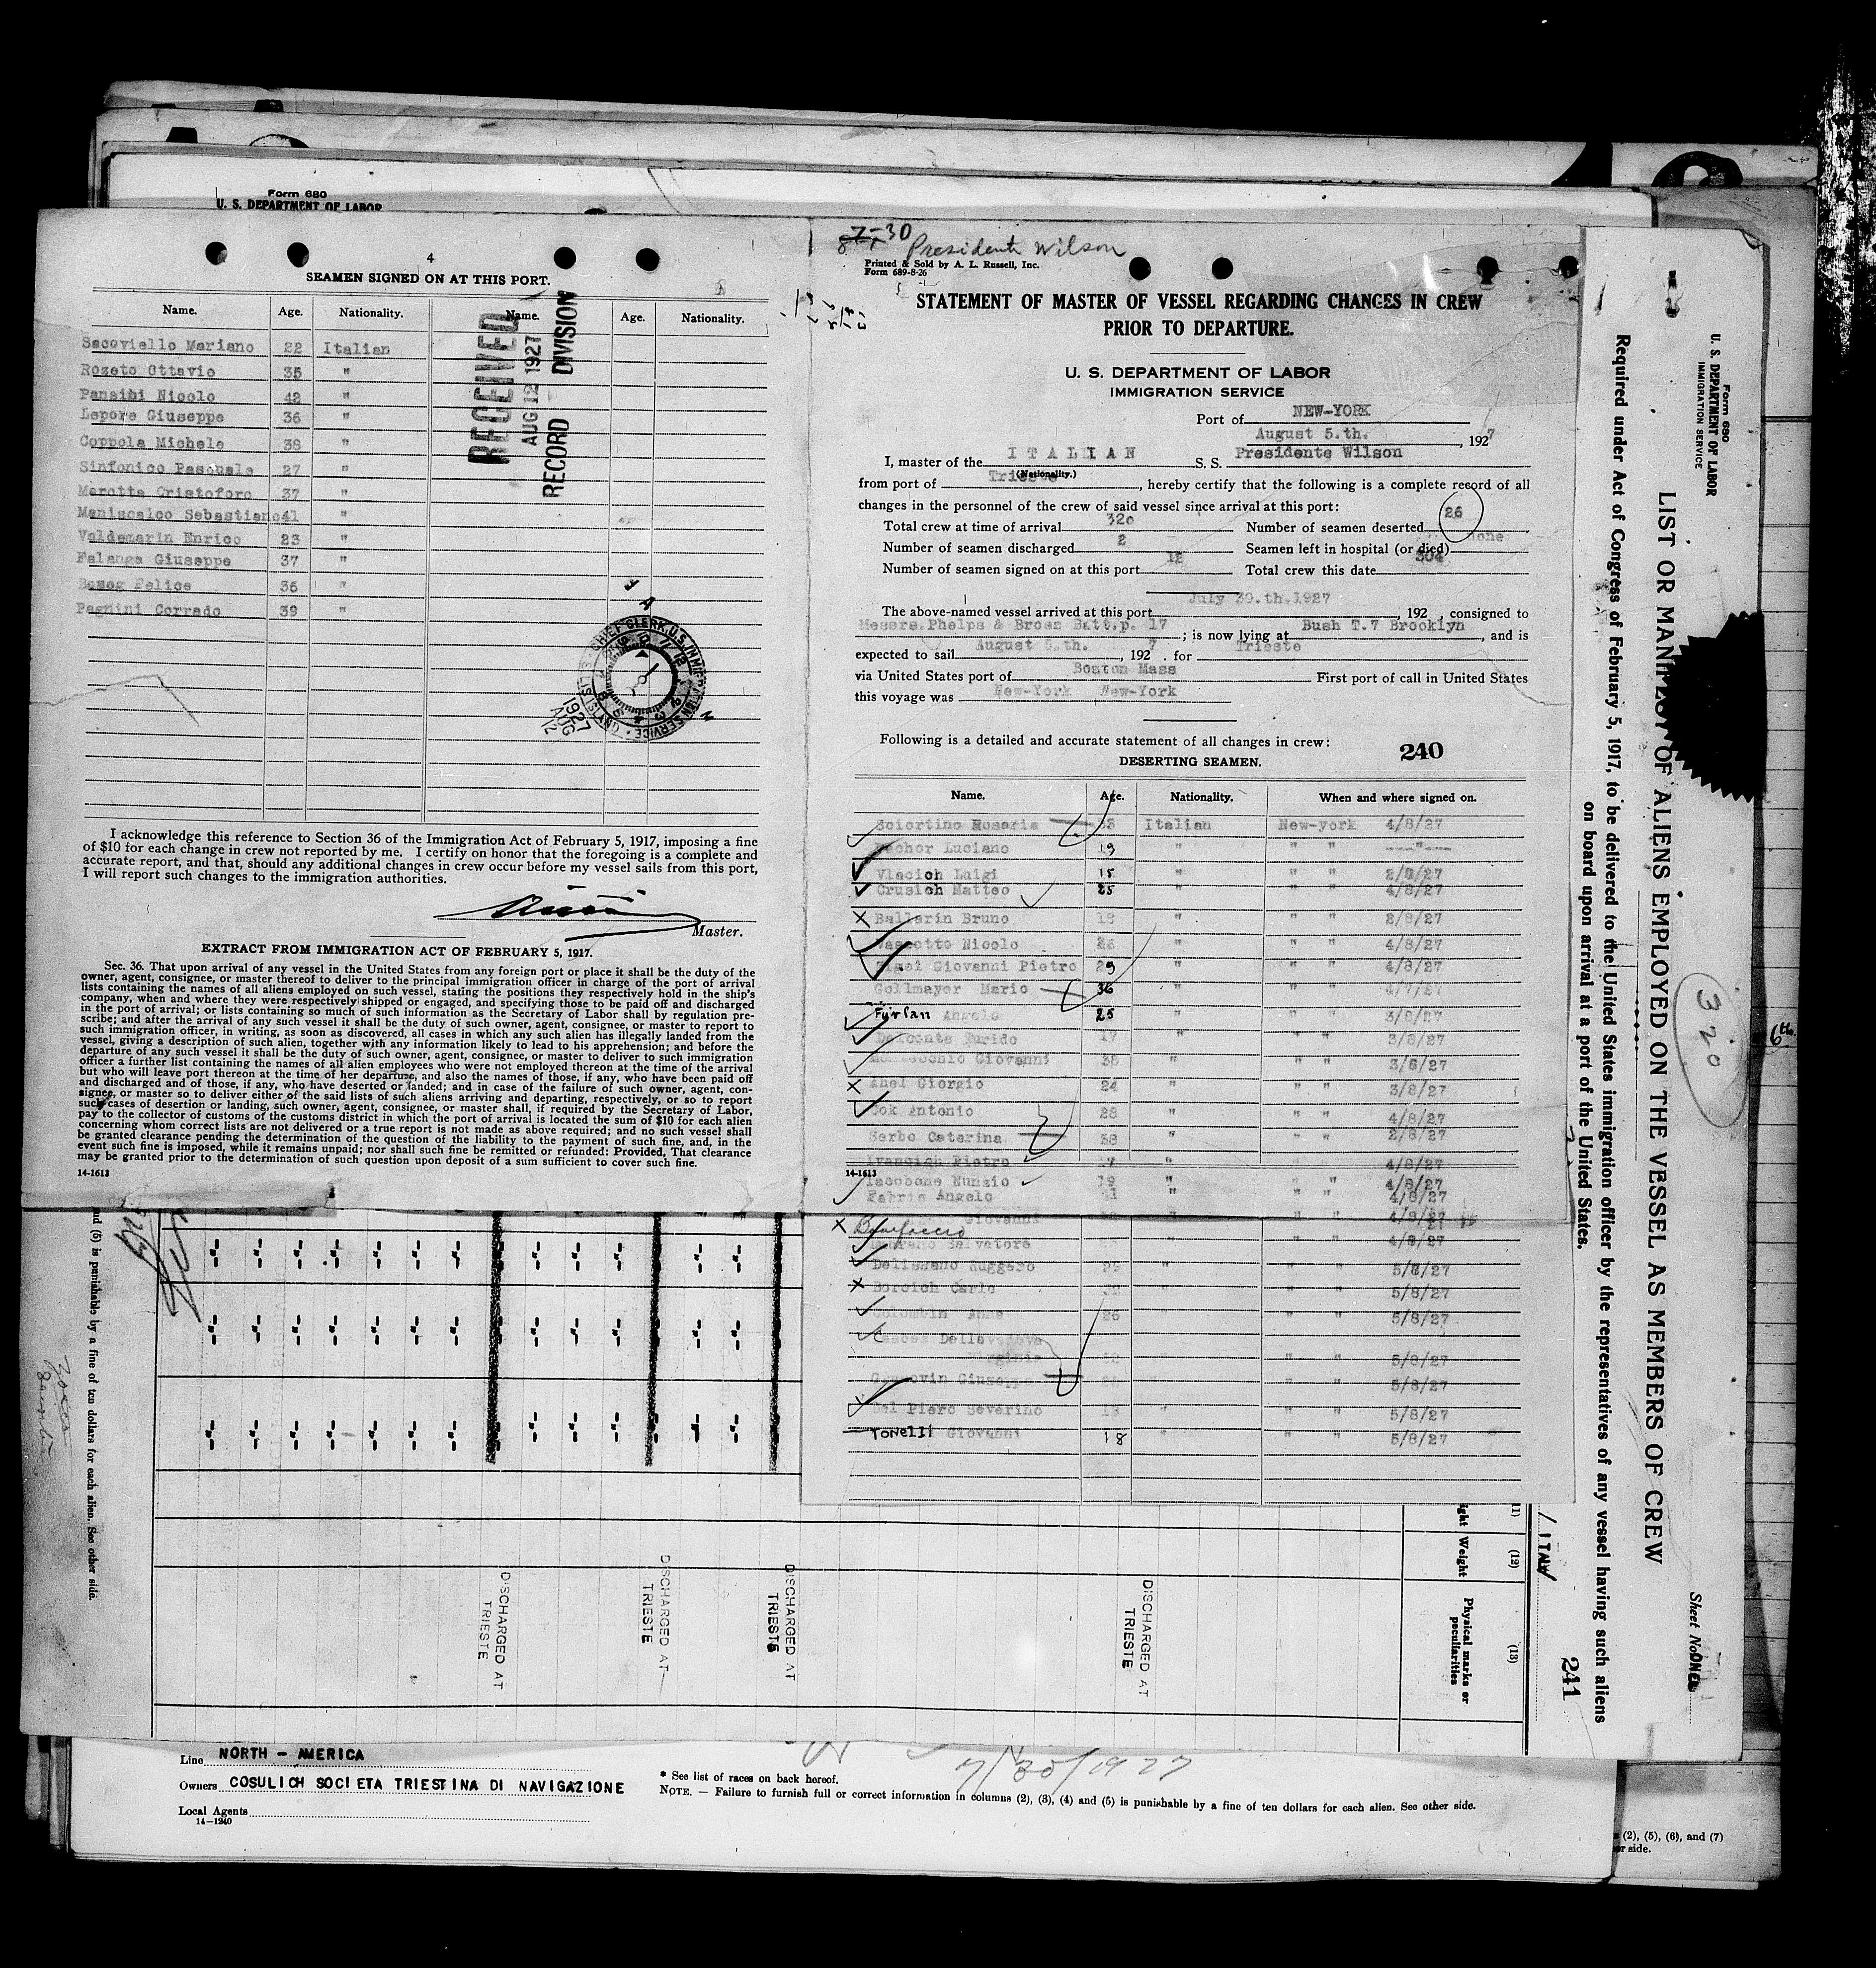 Form 680
U. S. DEPARTMENT OF LABOR
4
SEAMEN SIGNED ON AT THIS PORT.
Name. Age. Nationality. Name. Age. Nationality.
Sacoviello Mariano 22 Italian
Rozeto Ottavio 35 "
Pansini Nicolo 42 "
Lepore Giuseppe 36 "
Coppola Michele 38 "
Sinfonico Pasquale 27 "
Marotta Cristoforo 37 "
Maniscalco Sebastiano 41 "
Valdemarin Enrico 23 "
Falanga Giuseppe 37 "
Felice 36 "
Pagnini Corrado 39 "
RECEIVED
AUG 12 1927
RECORD DIVISION
CHIEF CLERK, U.S. IMMIGRATION SERVICE
1927
AUG
12
I acknowledge this reference to Section 36 of the Immigration Act of February 5, 1917, imposing a fine
of $10 for each change in crew not reported by me. I certify on honor that the foregoing is a complete and
accurate report, and that, should any additional changes in crew occur before my vessel sails from this port,
I will report such changes to the immigration authorities.
Master.
EXTRACT FROM IMMIGRATION ACT OF FEBRUARY 5, 1917.
Sec. 36. That upon arrival of any vessel in the United States from any foreign port or place it shall be the duty of the
owner, agent, consignee, or master thereof to deliver to the principal immigration officer in charge of the port of arrival
lists containing the names of all aliens employed on such vessel, stating the positions they respectively hold in the ship's
company, when and where they were respectively shipped or engaged, and specifying those to be paid off and discharged
in the port of arrival; or lists containing so much of such information as the Secretary of Labor shall by regulation pre-
scribe; and after the arrival of any such vessel it shall be the duty of such owner, agent, consignee, or master to report to
such immigration officer, in writing, as soon as discovered, all cases in which any such alien has illegally landed from the
vessel, giving a description of such alien, together with any information likely to lead to his apprehension; and before the
departure of any such vessel it shall be the duty of such owner, agent, consignee, or master to deliver to such immigration
officer a further list containing the names of all alien employees who were not employed thereon at the time of the arrival
but who will leave port thereon at the time of her departure, and also the names of those, if any, who have been paid off
and discharged and of those, if any, who have deserted or landed; and in case of the failure of such owner, agent, con-
signee, or master so to deliver either of the said lists of such aliens arriving and departing, respectively, or so to report
such cases of desertion or landing, such owner, agent, consignee, or master shall, if required by the Secretary of Labor,
pay to the collector of customs of the customs district in which the port of arrival is located the sum of $10 for each alien
concerning whom correct lists are not delivered or a true report is not made as above required; and no such vessel shall
be granted clearance pending the determination of the question of the liability to the payment of such fine, and, in the
event such fine is imposed, while it remains unpaid; nor shall such fine be remitted or refunded: Provided, That clearance
may be granted prior to the determination of such question upon deposit of a sum sufficient to cover such fine.
14-1613
7-30 Presidente Wilson
Printed & Sold by A. L. Russell, Inc.
Form 689-8-26
STATEMENT OF MASTER OF VESSEL REGARDING CHANGES IN CREW
PRIOR TO DEPARTURE.
U. S. DEPARTMENT OF LABOR
IMMIGRATION SERVICE
Port of NEW-YORK
August 5.th. , 1927
I, master of the ITALIAN S. S. Presidente Wilson
(Nationality.)
from port of Trieste , hereby certify that the following is a complete record of all
changes in the personnel of the crew of said vessel since arrival at this port:
Total crew at time of arrival 320 Number of seamen deserted 26
Number of seamen discharged 2 Seamen left in hospital (or died) none
Number of seamen signed on at this port 12 Total crew this date 304
The above-named vessel arrived at this port July 30.th.1927 , 192 , consigned to
Messrs.Phelps & Bross Batt.p. 17 ; is now lying at Bush T.7 Brooklyn , and is
expected to sail August 5.th. , 1927 . for Trieste
via United States port of Boston Mass First port of call in United States
this voyage was New-York New-York
Following is a detailed and accurate statement of all changes in crew: 240
DESERTING SEAMEN.
Name. Age. Nationality. When and where signed on.
Sciortino Rosaria 33 Italian New-york 4/8/27
Luciano 19 " " "
Vlacich Luigi 15 " " " 2/8/27
Crusich Matteo 25 " " " 4/8/27
Ballarin Bruno 18 " " " 2/8/27
Vascotto Nicolo " " " 4/8/27
Giovanni Pietro 29 " " " 4/8/27
Gollmayer Mario 36 " " " 4/7/27
Furlan Angelo 25 " " " 3/8/27
Delconte Eurido 17 " " 3/8/27
Giovanni 36 " " " 3/8/27
Ahel Giorgio 24 " " " 3/8/27
Cok Antonio 28 " " " 4/8/27
Serbo Caterina 38 " " " 2/8/27
Ivancich Pietro 17 " 4/8/27
14-1613
Iacobone Nunzio 19 " " " 4/8/27
Fabris Angelo 41 " " " 4/8/27
Bonifacio Giovanni 4/8/27
Salvatore " " " 4/8/27
Delissano Ruggero " " " 5/8/27
Borcich Carlo " " " 5/8/27
Anna 26 " " " 5/8/27
Dellavedova
Virginia " " 5/8/27
Giuseppe " " 5/8/27
Del Piero Severino 19 " " " 5/8/27
Tonelli Giovanni 18 " " " 5/8/27
Form 680
U. S. DEPARTMENT OF LABOR
IMMIGRATION SERVICE
LIST OR MANIFEST OF ALIENS EMPLOYED ON THE VESSEL AS MEMBERS OF CREW
Required under Act of Congress of February 5, 1917, to be delivered to the United States immigration officer by the representatives of any vessel having such aliens
on board upon arrival at a port of the United States.
320
6th
Sheet No. ONE
/ ITALY
241
(12) (13)
Weight
Physical marks or
peculiarities
DISCHARGED AT
TRIESTE
DISCHARGED AT
TRIESTE
DISCHARGED AT
TRIESTE
DISCHARGED AT
TRIESTE
(5) is punishable by a fine of ten dollars for each alien. See other side.
Line NORTH - AMERICA
Owners COSULICH SOCIETA TRIESTINA DI NAVIGAZIONE
Local Agents
14-1240
7/30/1927
* See list of races on back hereof.
NOTE. — Failure to furnish full or correct information in columns (2), (3), (4) and (5) is punishable by a fine of ten dollars for each alien. See other side.
(2), (5), (6), and (7)
side.